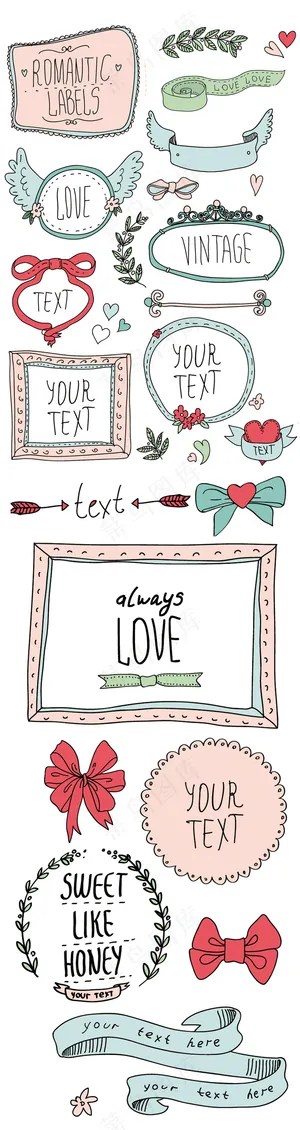 ROMANTIC
LABELS
LOVE
LOVE
LOVE
VINTAGE
TEXT
YOUR
TEXT
YOUR
TEXT
TEXT
text
always
LOVE
YOUR
TEXT
SWEET
LIKE
HONEY
YOUR TEXT
your text here
your text here